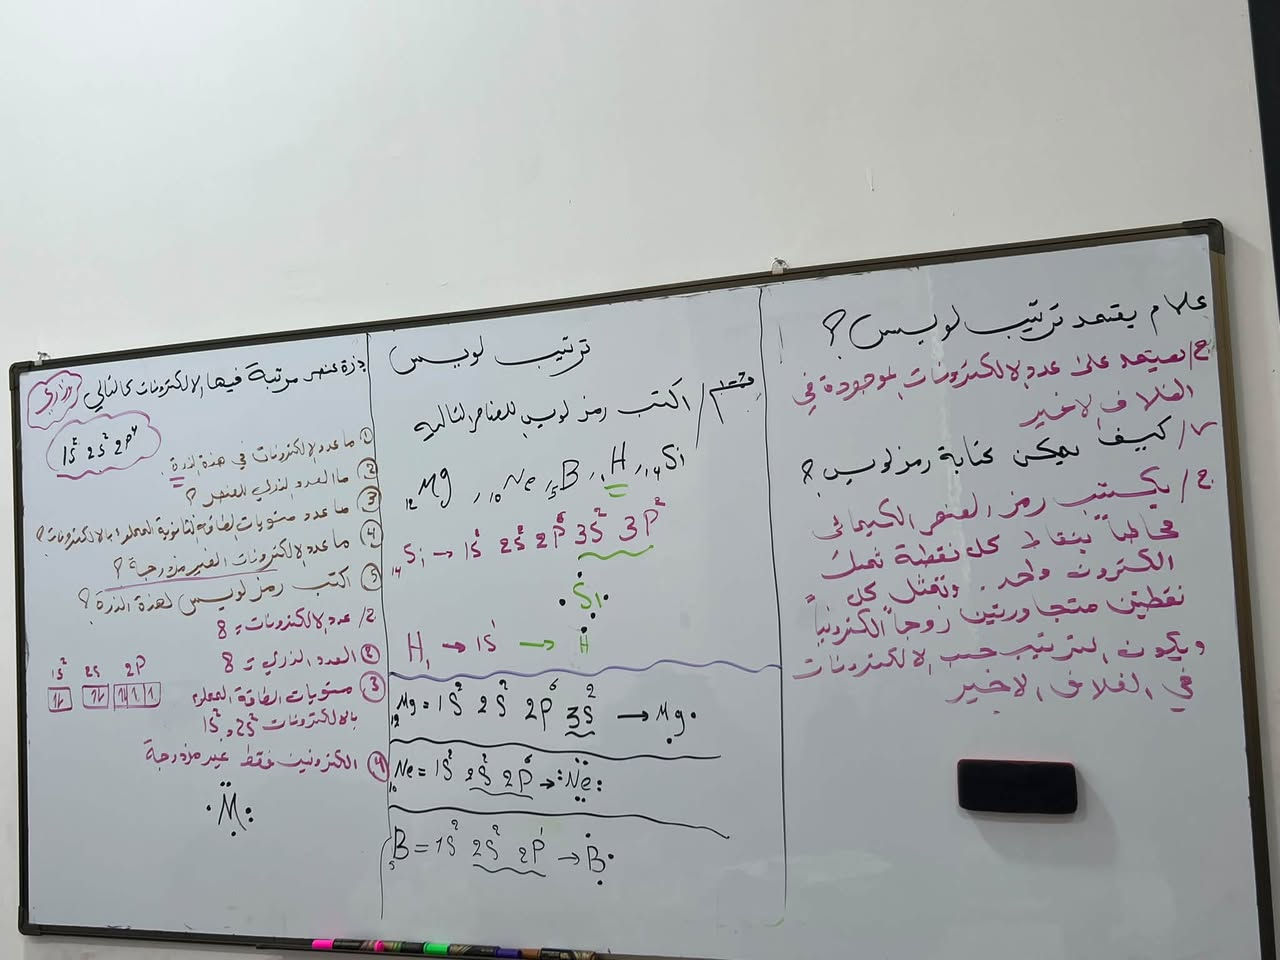 علام يعتمد ترتيب لويس؟
ج/ يعتمد على عدد الالكترونات الموجودة في
الغلاف الاخير
س/ كيف يمكن كتابة رمز لويس؟
ج/ يكتب رمز العنصر الكيميائي
محاطاً بنقاط كل نقطة تمثل
الكترون واحد. وتمثل كل
نقطتين متجاورتين زوجاً الكترونياً
ويكون الترتيب حسب الالكترونات
في الغلاف الاخير
ترتيب لويس
اكتب رمز لويس للعناصر التالية
₁₂Mg , ₁₀Ne , ₅B , ₁H , ₁₄Si
₁₄Si → 1S² 2S² 2P⁶ 3S² 3P²
Si
H₁ → 1S¹ → H
₁₂Mg = 1S² 2S² 2P⁶ 3S² → Mg
₁₀Ne = 1S² 2S² 2P⁶ → Ne
₅B = 1S² 2S² 2P¹ → B
ذرة عنصر مرتبة فيها الالكترونات كالتالي
وزاري
1S² 2S² 2P⁴
① ما عدد الالكترونات في هذه الذرة.
② ما العدد الذري للعنصر؟
③ ما عدد مستويات الطاقة الثانوية المملوءة بالالكترونات؟
④ ما عدد الالكترونات الغير مزدوجة؟
⑤ اكتب رمز لويس لهذة الذرة؟
ج/ عدد الالكترونات = 8
② العدد الذري = 8
③ مستويات الطاقة المملوءة
بالالكترونات 1S² , 2S²
1S² 2S 2P
④ الكترونين فقط غير مزدوجة
M